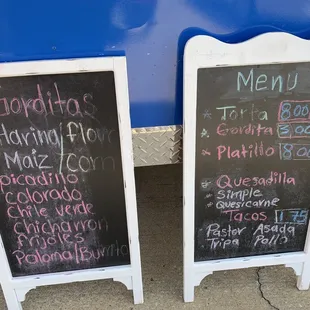 Gorditas
Harina/Flour
Maiz/Corn
picadino
colorado
Chile verde
Chicharron
frijoles
Paloma/Burrito
Menu
Torta 8.00
Gordita 3.00
Platillo 8.00
Quesadilla
Simple
Quesicarne
Tacos 1.75
Pastor Asada
Tripa Pollo